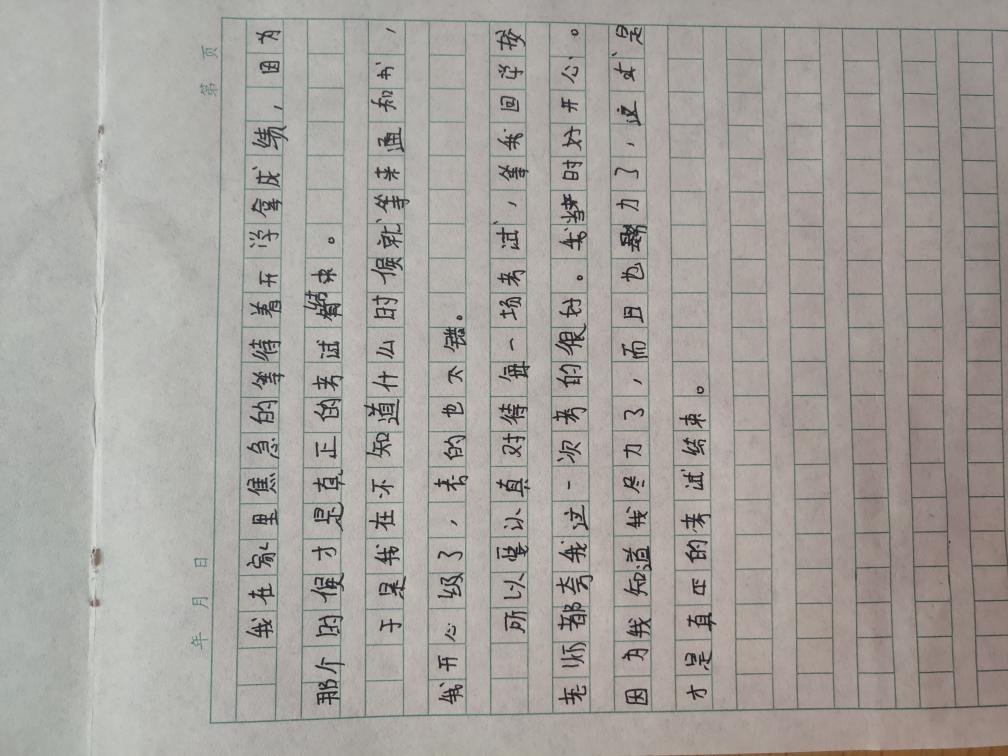 年 月 日 第 页
我在家里焦急的等待着开学拿成绩，因为
那个时候才是真正的考试结束。
于是我在不知道什么时候就等来通知书，
我开心级了，考的也不错。
所以要认真对待每一场考试，等我回学校
老师都夸我这一次考的很好。我当时好开心。
因为我知道我尽力了，而且也努力了，这才是
才是真正的考试结束。